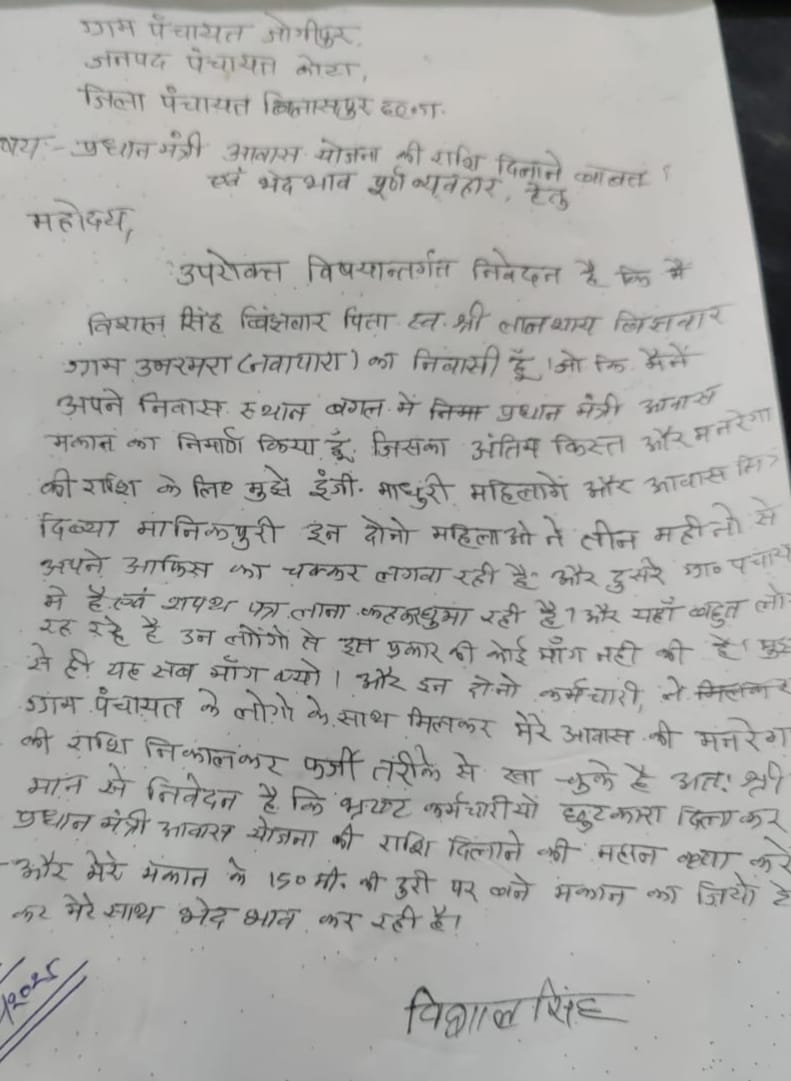 ग्राम पंचायत जोगीपुर,
जनपद पंचायत कोटा,
जिला पंचायत बिलासपुर छ०ग०
षय:- प्रधान मंत्री आवास योजना की राशि दिलाने बाबत।
एवं भेद भाव पूर्ण व्यवहार, हेतु
महोदय,
उपरोक्त विषयान्तर्गत निवेदन है कि मै
विशाल सिंह बिंझवार पिता स्व. श्री बिंझवार
ग्राम उमरमरा (नवापारा) का निवासी हूँ। जो कि मैनें
अपने निवास स्थान बगल में प्रधान मंत्री आवास
मकान का निमार्ण किया हूँ, जिसका अंतिम किस्त और मनरेगा
की राशि के लिए मुझे इंजी. माधुरी और आवास मित्र
दिव्या मानिकपुरी इन दोनो महिलाओ ने तीन महीनो से
अपने आफिस का चक्कर लगवा रही है- और दुसरे ग्रा० पंचाय
मे है एवं शपथ पत्र लाना कहकर घुमा रही है? और यहाँ बहुत लो
रह रहे है उन लोंगो से इस प्रकार की कोई माँग नही की है। मुझ
से ही यह सब माँग क्यो। और इन दोनो कर्मचारी, ने मिलकर
ग्राम पंचायत के लोगो के साथ मिलकर मेरे आवास की मनरेगा
की राशि निकालकर फर्जी तरीके से खा चुके है अतः श्री
मान से निवेदन है कि भ्रष्ट कर्मचारीयों छुटकारा दिलाकर
प्रधान मंत्री आवास योजना की राशि दिलाने की महान कृपा करे
और मेरे मकान के 150 मी. की दुरी पर बने मकान का जियो टै
कर मेरे साथ भेद भाव कर रही है।
/2025
विशाल सिंह